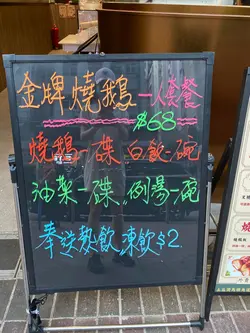 金牌燒鵝一人套餐
$68
燒鵝一碟 白飯一碗
油菜一碟,例湯一碗
奉送熱飲,凍飲$2